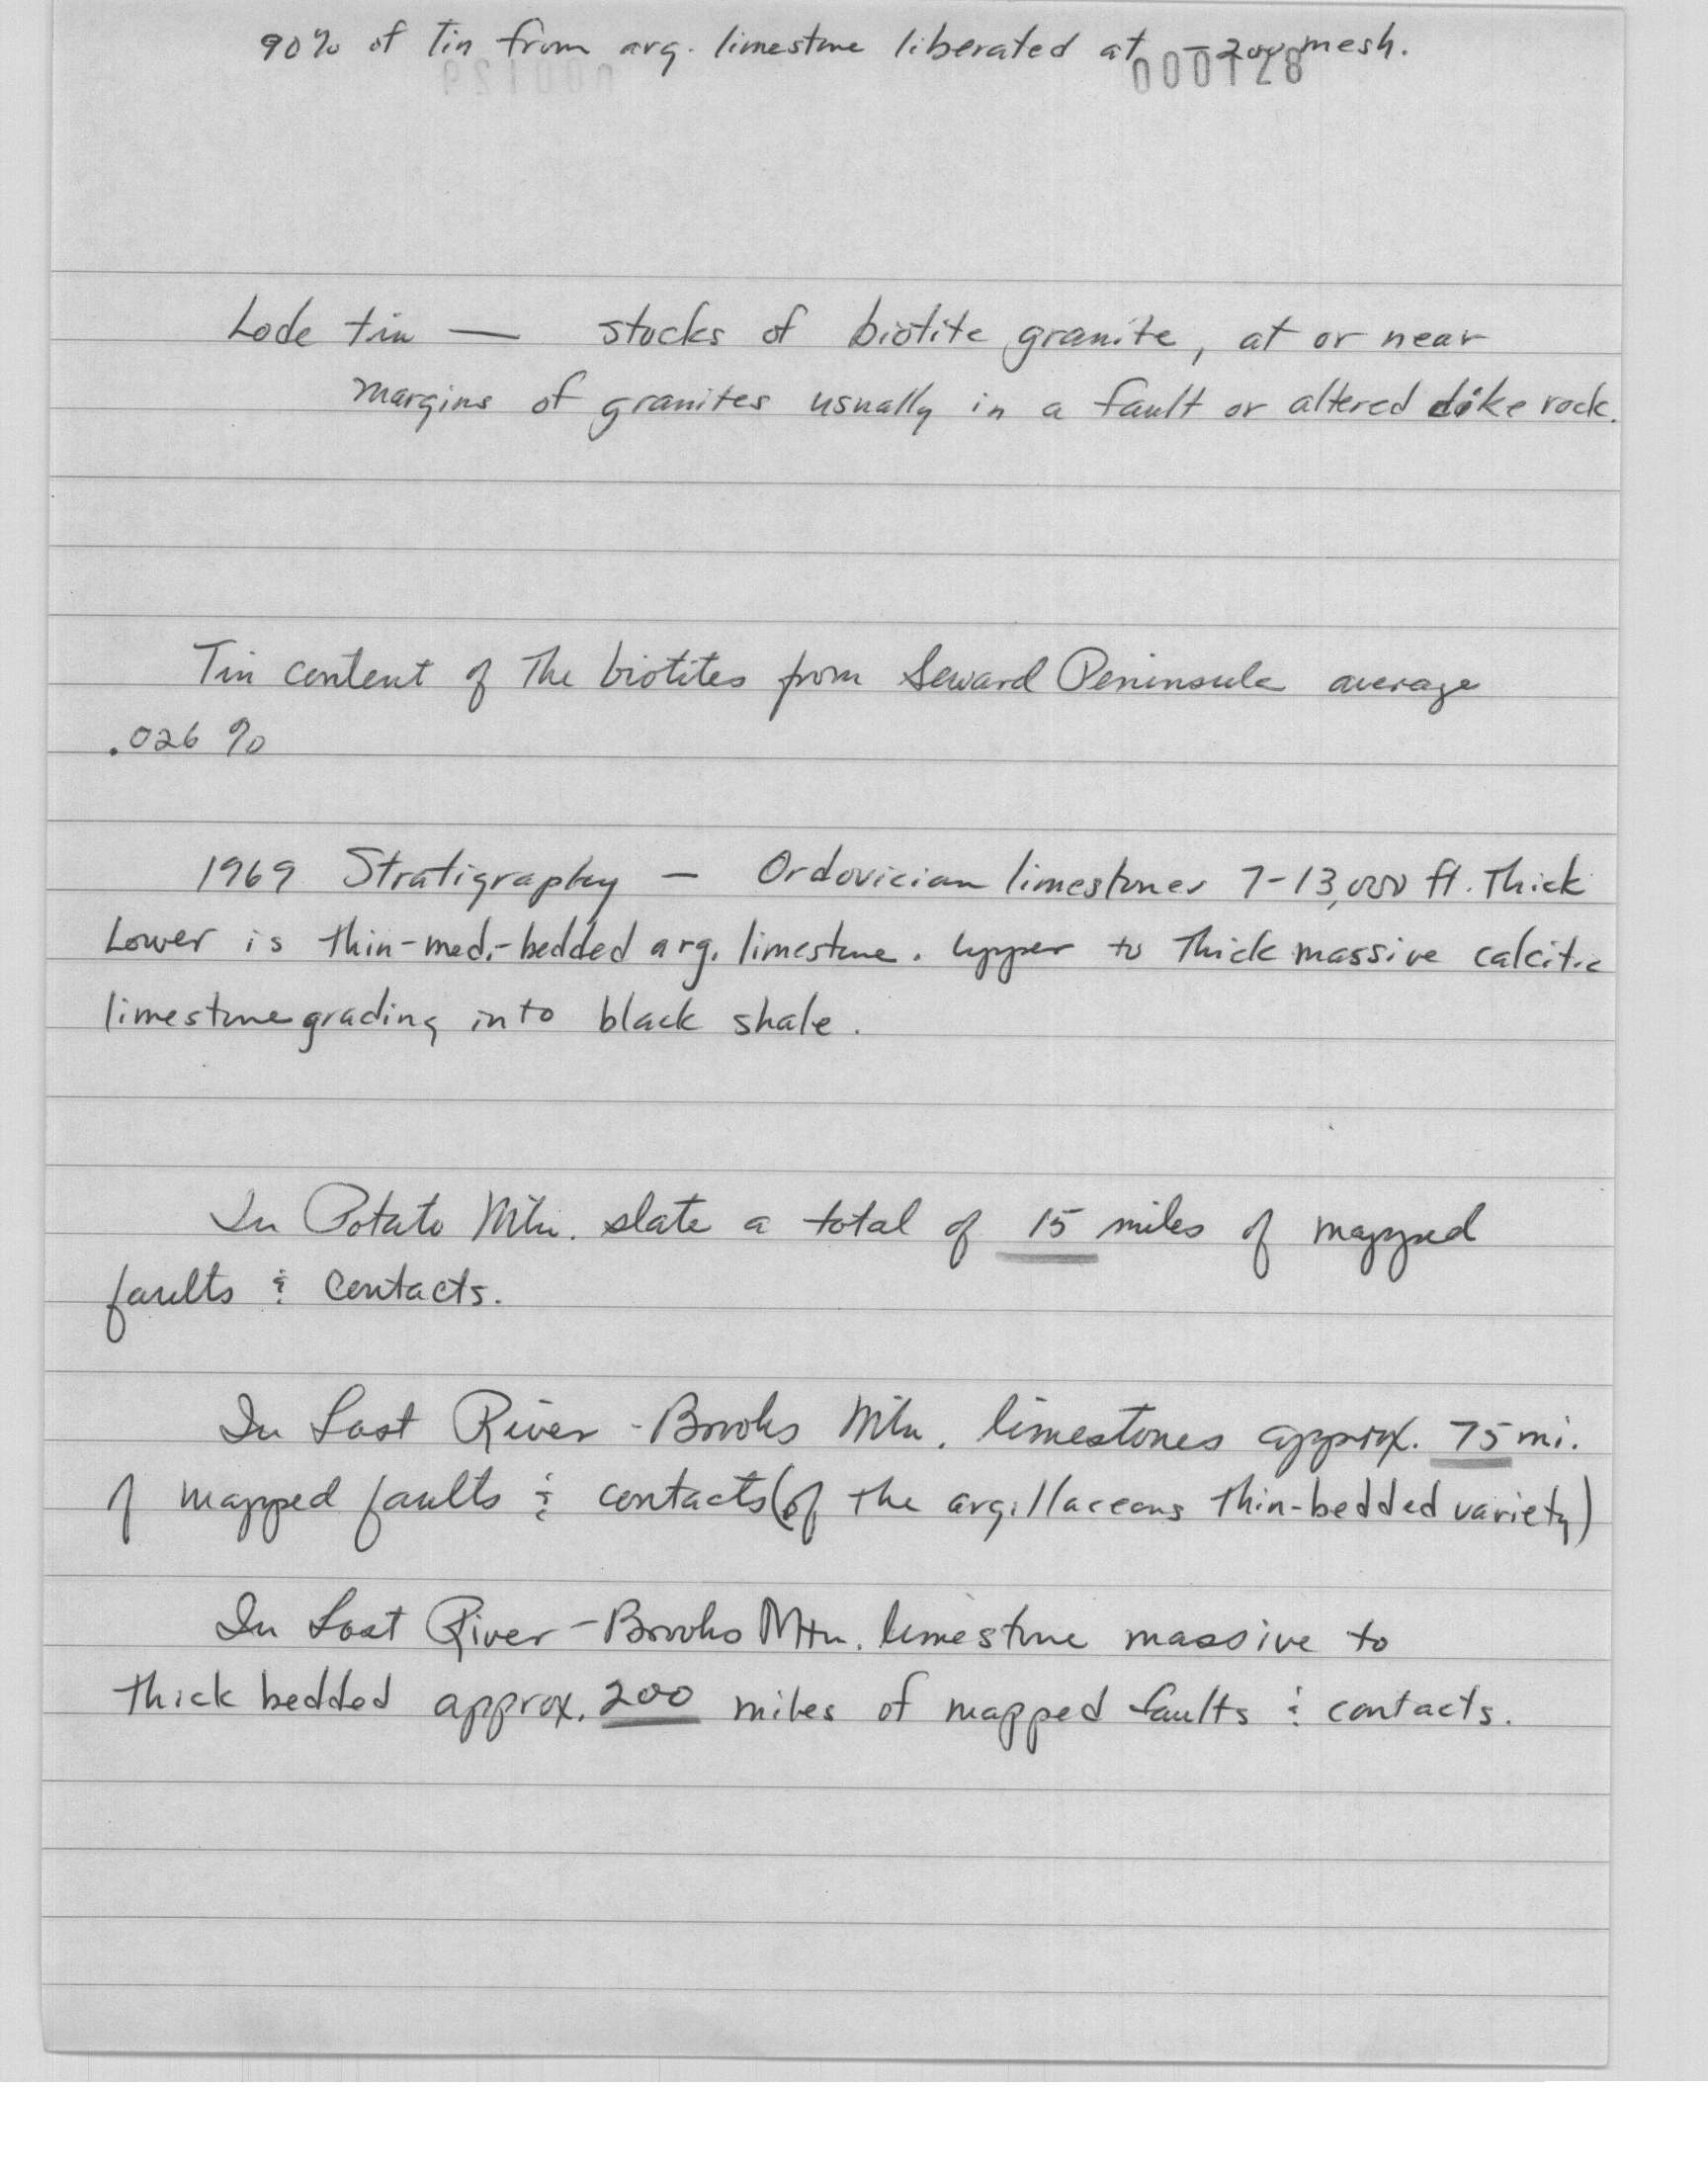 90% of Tin from arg. limestone liberated at -200 mesh.
000128
Lode tin — stocks of biotite granite, at or near
margins of granites usually in a fault or altered dike rock.
Tin content of The biotites from Seward Peninsula average
.026 %
1969 Stratigraphy — Ordovician limestones 7-13,000 ft. Thick
Lower is thin-med.-bedded arg. limestone. Upper to Thick massive calcitic
limestone grading into black shale.
In Potato Mtn. slate a total of 15 miles of mapped
faults & contacts.
In Lost River - Brooks Mtn. limestones approx. 75 mi.
of mapped faults & contacts (of the argillaceous thin-bedded variety)
In Lost River - Brooks Mtn. limestone massive to
thick bedded approx. 200 miles of mapped faults & contacts.